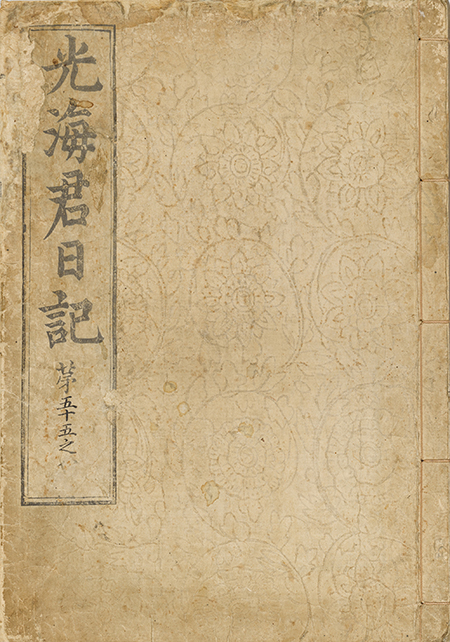 光海君日記
苐五十五之